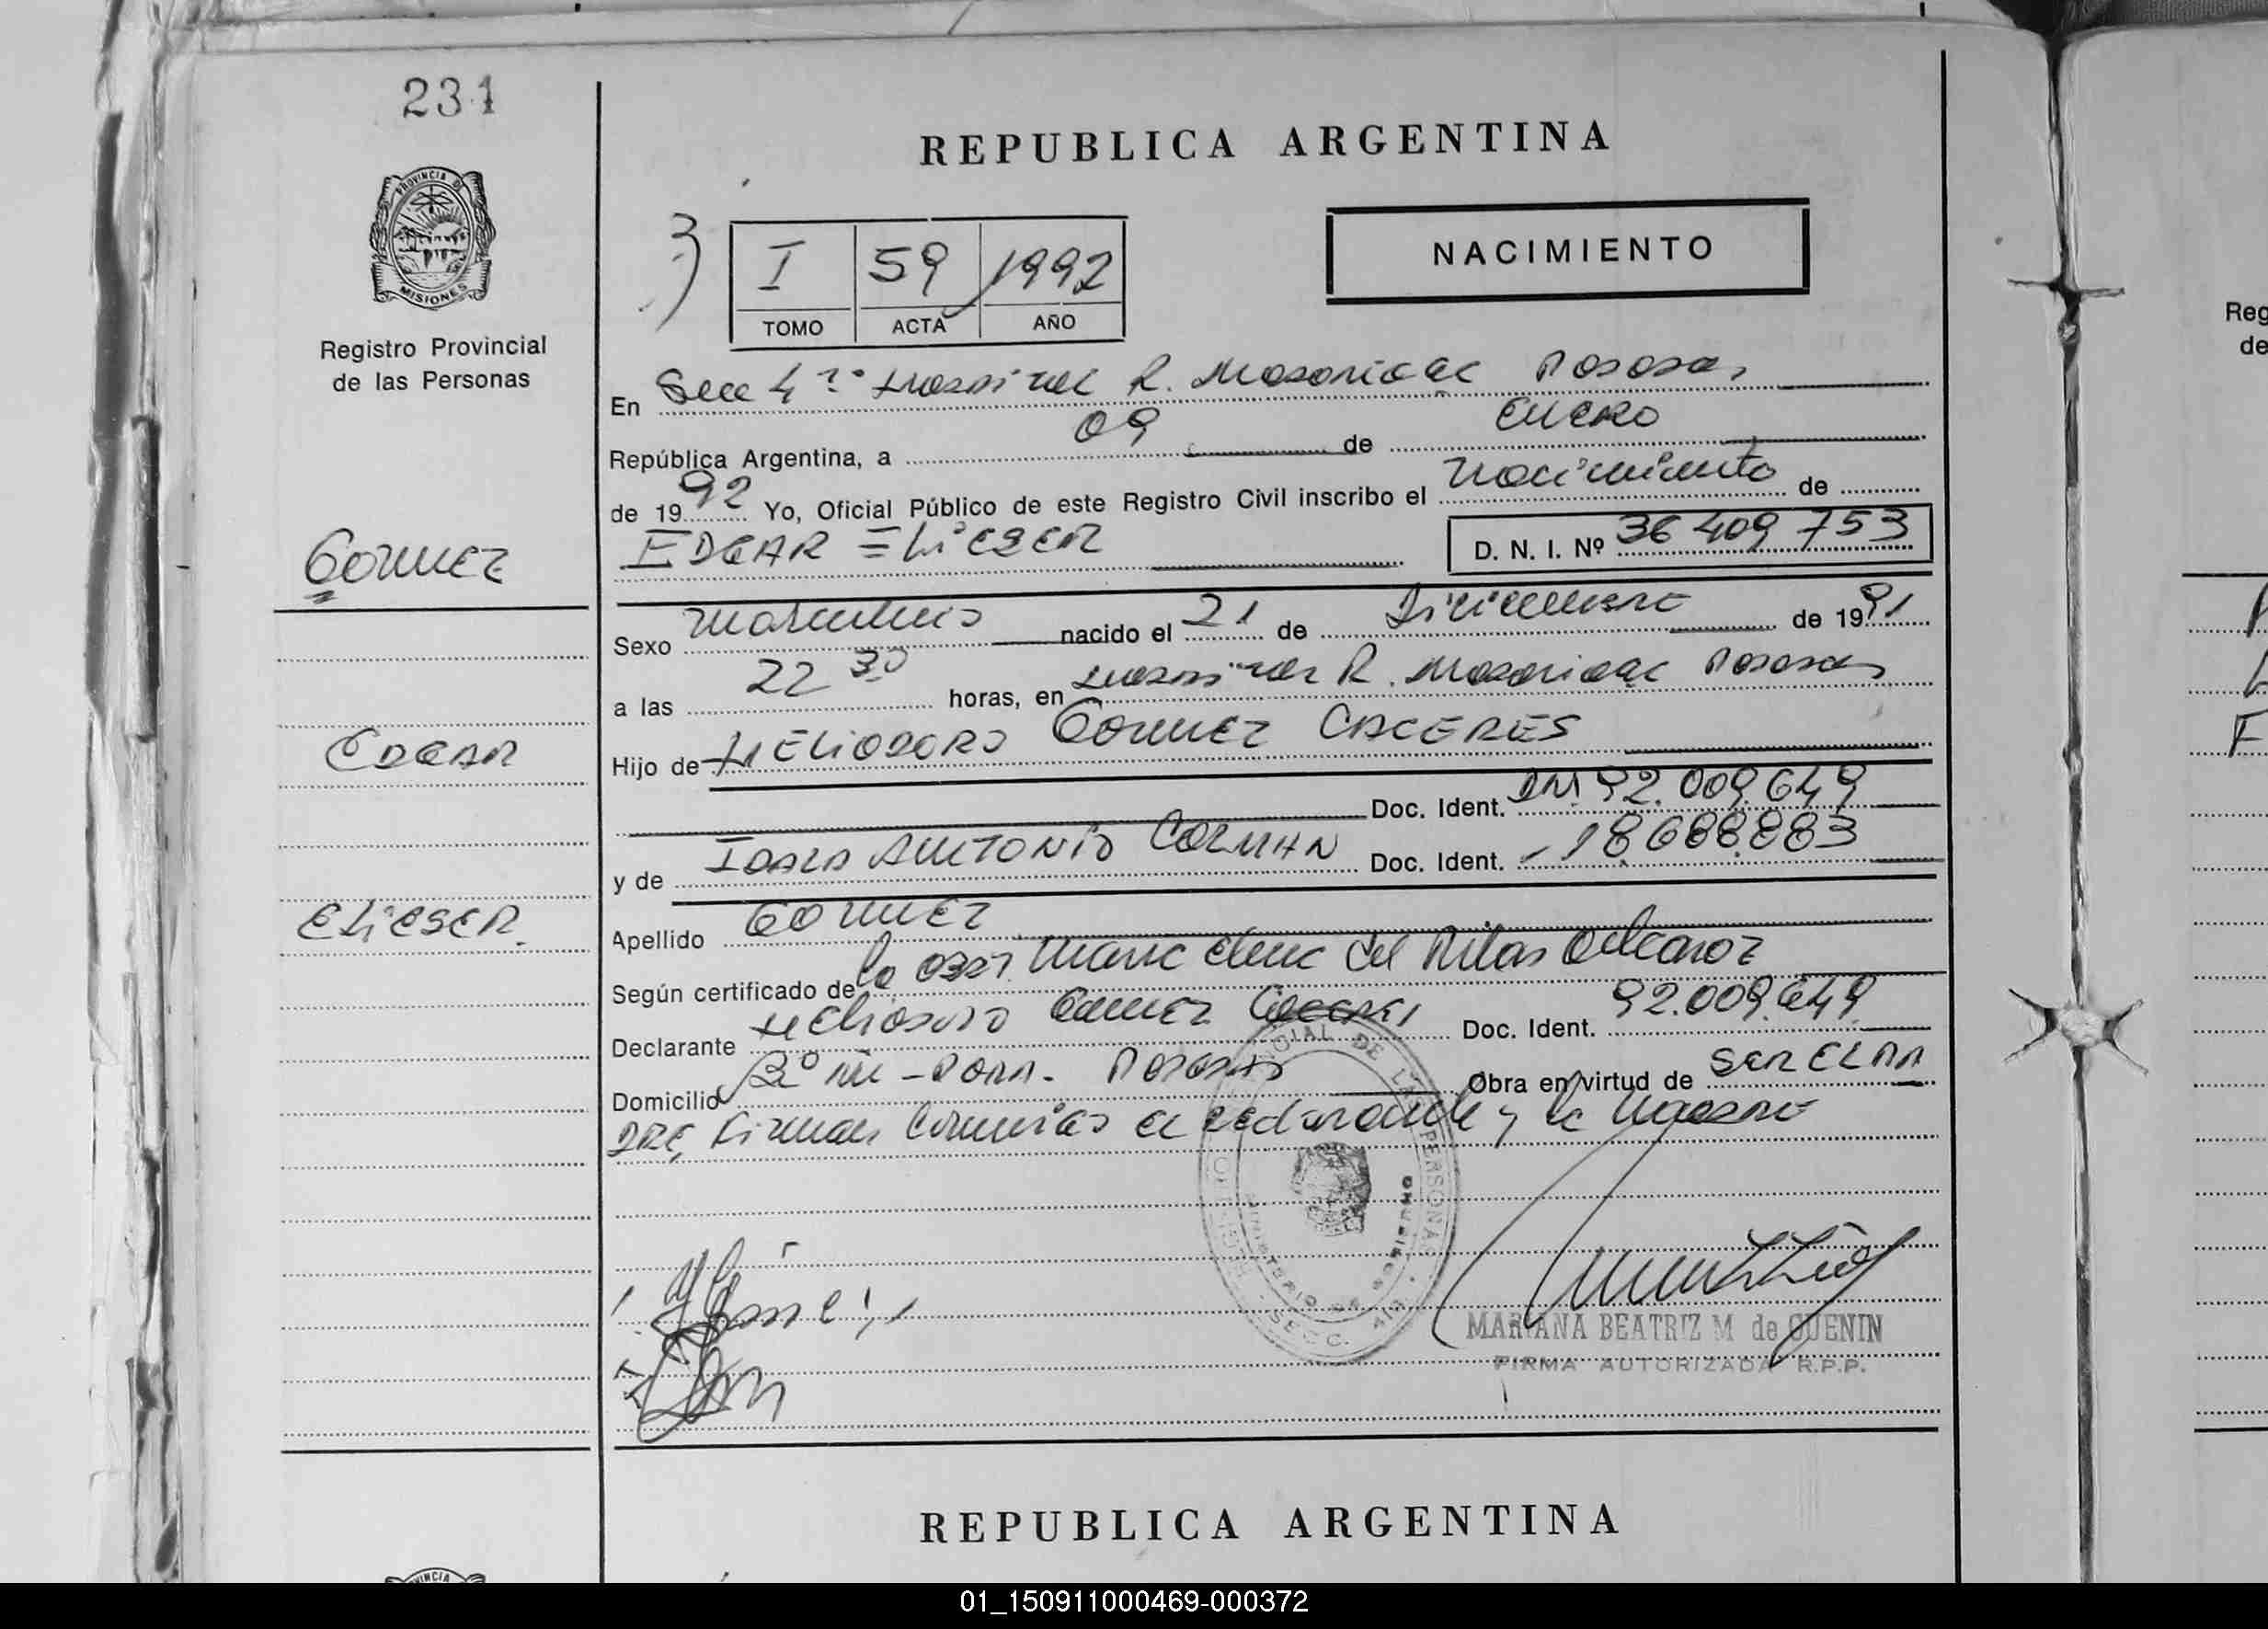 231
PROVINCIA DE
MISIONES
Registro Provincial
de las Personas
REPUBLICA ARGENTINA
NACIMIENTO
3)
I 59 1992
TOMO ACTA AÑO
En Secc 4 Hospital R. Madariaga Posadas
República Argentina, a 09 de Enero
de 1992 Yo, Oficial Público de este Registro Civil inscribo el Nacimiento de
EDGAR ELIESER D. N. I. Nº 36 409 753
Gomez
Sexo Masculino nacido el 21 de Diciembre de 1991
a las 22 30 horas, en Hospital R. Madariaga Posadas
Edgar
Hijo de HELIODORO Gomez CACERES
Doc. Ident. DNI 92.009.649
y de Doc. Ident. 18688883
Elieser
Apellido Gomez
Según certificado de la Obst. Maria Elena del Pilar
Declarante Heliodoro Gomez Caceres Doc. Ident. 92.009.649
Domicilio Posadas Obra en virtud de ser el pa
dre, Firman conmigo el declarante y la Madre
MARIANA BEATRIZ M de GUENIN
FIRMA AUTORIZADA R.P.P.
REPUBLICA ARGENTINA
Reg
de
01_150911000469-000372